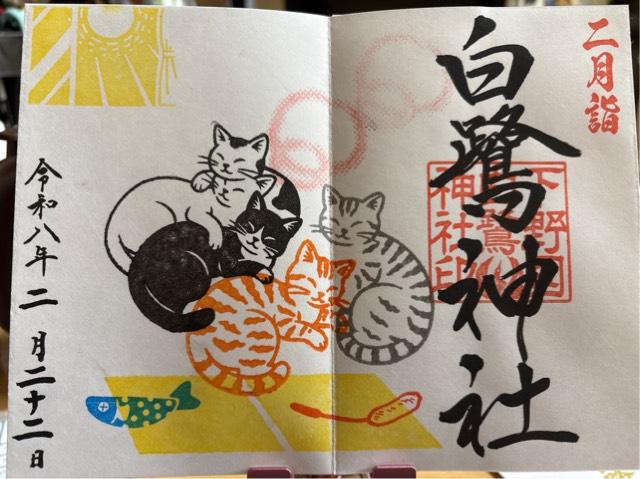 二月詣
白鷺神社
下野国
白鷺
神社印
令和八年二月二十二日